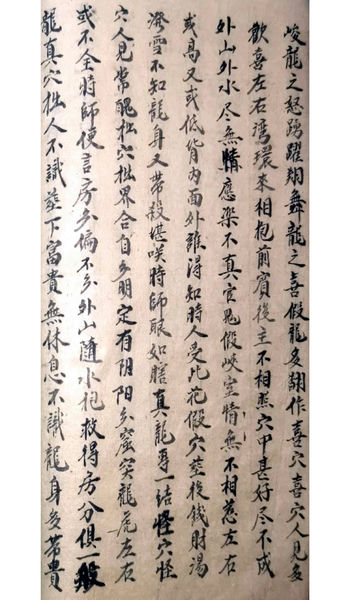 峻龍之怒踴躍翔舞龍之喜假龍多翻作喜穴喜穴人見多
歡喜左右湾環来相抱前賓後主不相照穴中甚好尽不成
外山外水尽無情應樂不真官鬼假峽室情無不相惹左右
或高又或低背内面外誰得知時人受此花假穴葬後錢財湯
潑雪不知龍身又帶殺堪咲時師眼如瞎真龍專一结怪穴怪
穴人見常醜拙穴拙界合自多明定有阴阳分窩突龍虎左右
或不全時師便言房分偏不多外山随水抱救得房分俱一般
龍真穴拙人不識葬下富貴無休息不識龍身多帶貴